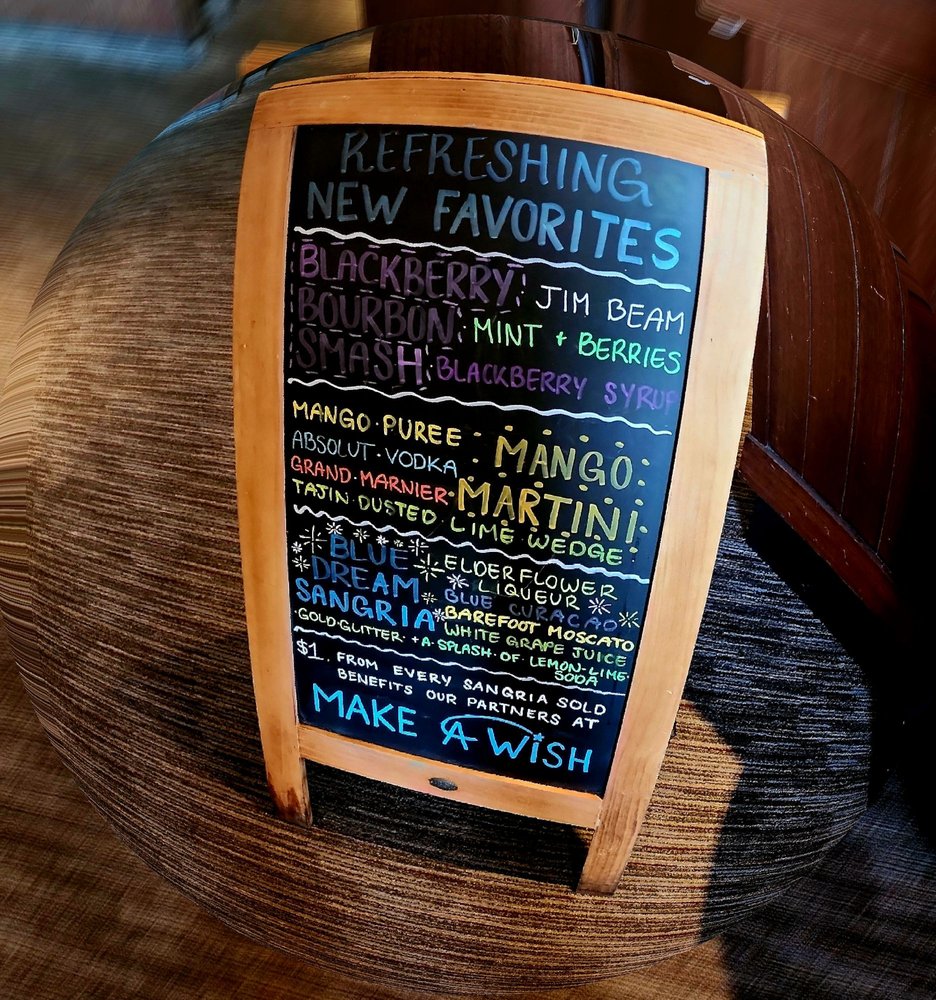 REFRESHING
NEW FAVORITES
BLACKBERRY
BOURBON
SMASH
JIM BEAM
MINT + BERRIES
BLACKBERRY SYRUP
MANGO PUREE
ABSOLUT VODKA
GRAND MARNIER
TAJIN DUSTED LIME WEDGE
MANGO
MARTINI
BLUE
DREAM
SANGRIA
ELDERFLOWER
LIQUEUR
BLUE CURACAO
BAREFOOT MOSCATO
WHITE GRAPE JUICE
·GOLD·GLITTER· +A·SPLASH·OF LEMON-LIME·
SODA
$1. FROM EVERY SANGRIA SOLD
BENEFITS OUR PARTNERS AT
MAKE A WISH